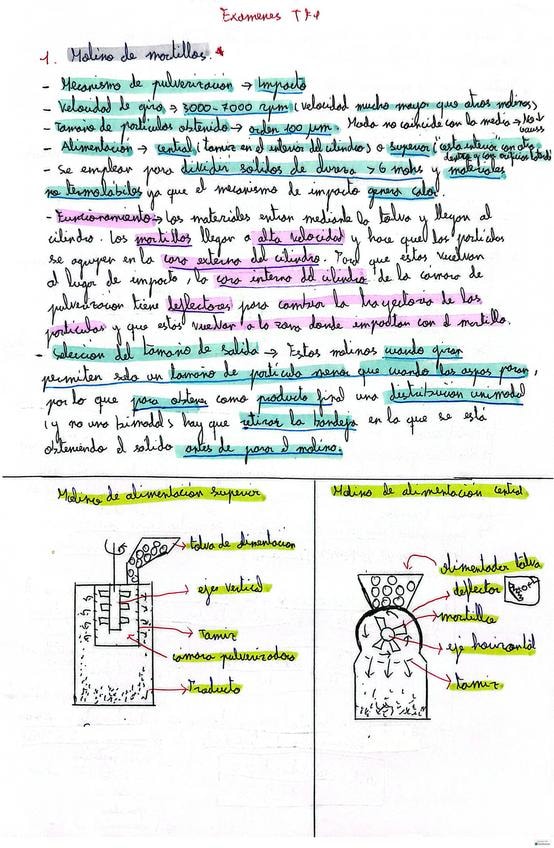 Examenes TF1
1. Molino de martillos. *
- Mecanismo de pulverización → Impacto
- Velocidad de giro → 3000-7000 rpm (velocidad mucho mayor que otros molinos)
- Tamaño de partículas obtenido → orden 100 µm. Moda no coincide con la media → No gauss
- Alimentación → central (tamiz en el interior del cilindro) o superior (cesta interior con otra
dentro y con orificios lateral)
- Se emplear para dividir sólidos de dureza > 6 mohs y materiales
no termolábiles ya que el mecanismo de impacto genera calor.
- Funcionamiento → los materiales entran mediante la tolva y llegan al
cilindro. Los martillos llegan a alta velocidad y hace que las partículas
se agrupen en la cara externa del cilindro. Para que estas vuelvan
al lugar de impacto, la cara interna del cilindro de la cámara de
pulverización tiene deflectores para cambiar la trayectoria de las
partículas y que estas vuelvan a la zona donde impactan con el martillo.
- Selección del tamaño de salida → Estos molinos cuando giran
permiten salir un tamaño de partícula menor que cuando las aspas paran,
por lo que para obtener como producto final una distribución unimodal
(y no una bimodal) hay que retirar la bandeja en la que se está
obteniendo el sólido antes de parar el molino.
Molino de alimentación superior
Molino de alimentación central
tolva de alimentación
eje vertical
Tamiz
cámara pulverizadora
Producto
Alimentador tolva
deflector
martillo
eje horizontal
tamiz